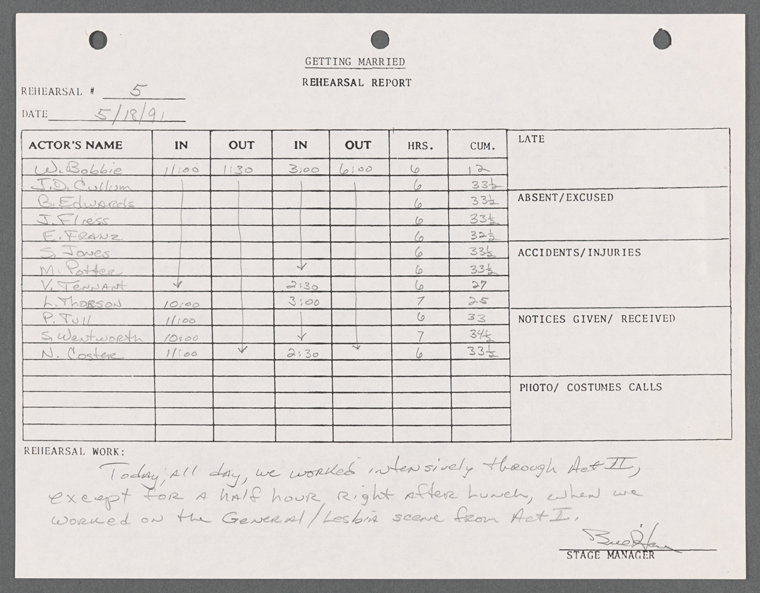 GETTING MARRIED
REHEARSAL REPORT
REHEARSAL # 5
DATE 5/18/91
ACTOR'S NAME IN OUT IN OUT HRS. CUM.
W. Bobbie 11:00 1:30 3:00 6:00 6 12
J.D. Cullum 6 33½
B. Edwards 6 33½
J. Fliess 6 33½
E. Franz 6 32½
S. Jones 6 33½
M. Potter 6 33½
V. Tennant 2:30 6 27
L. Thorson 10:00 3:00 7 25
P. Tull 11:00 6 33
S. Wentworth 10:00 7 34½
N. Coster 11:00 2:30 6 33½
LATE
ABSENT/EXCUSED
ACCIDENTS/INJURIES
NOTICES GIVEN/ RECEIVED
PHOTO/ COSTUMES CALLS
REHEARSAL WORK:
Today, all day, we worked intensively through Act II,
except for a half hour right after lunch, when we
worked on the General/Lesbia scene from Act I.
STAGE MANAGER